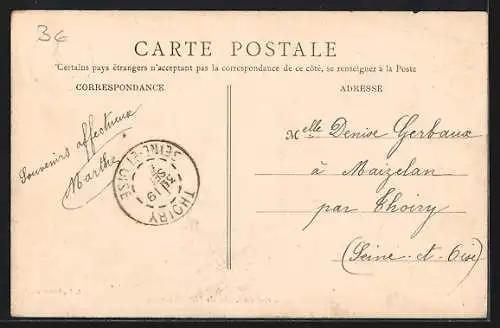 3€
CARTE POSTALE
Certains pays étrangers n'acceptant pas la correspondance de ce côté, se renseigner à la Poste
CORRESPONDANCE
Souvenirs affectueux
Marthe
THOIRY
SEINE-ET-OISE
ADRESSE
Melle Denise Gerbaux
à Maizelan
par Thoiry
(Seine-et-Oise)